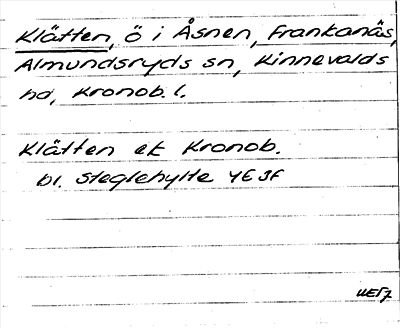 Klätten, ö i Åsnen, Frankanäs,
Almundsryds sn, Kinnevalds
hd, Kronob. l.
Klätten ek Kronob.
bl. Steglehylte 4E SF